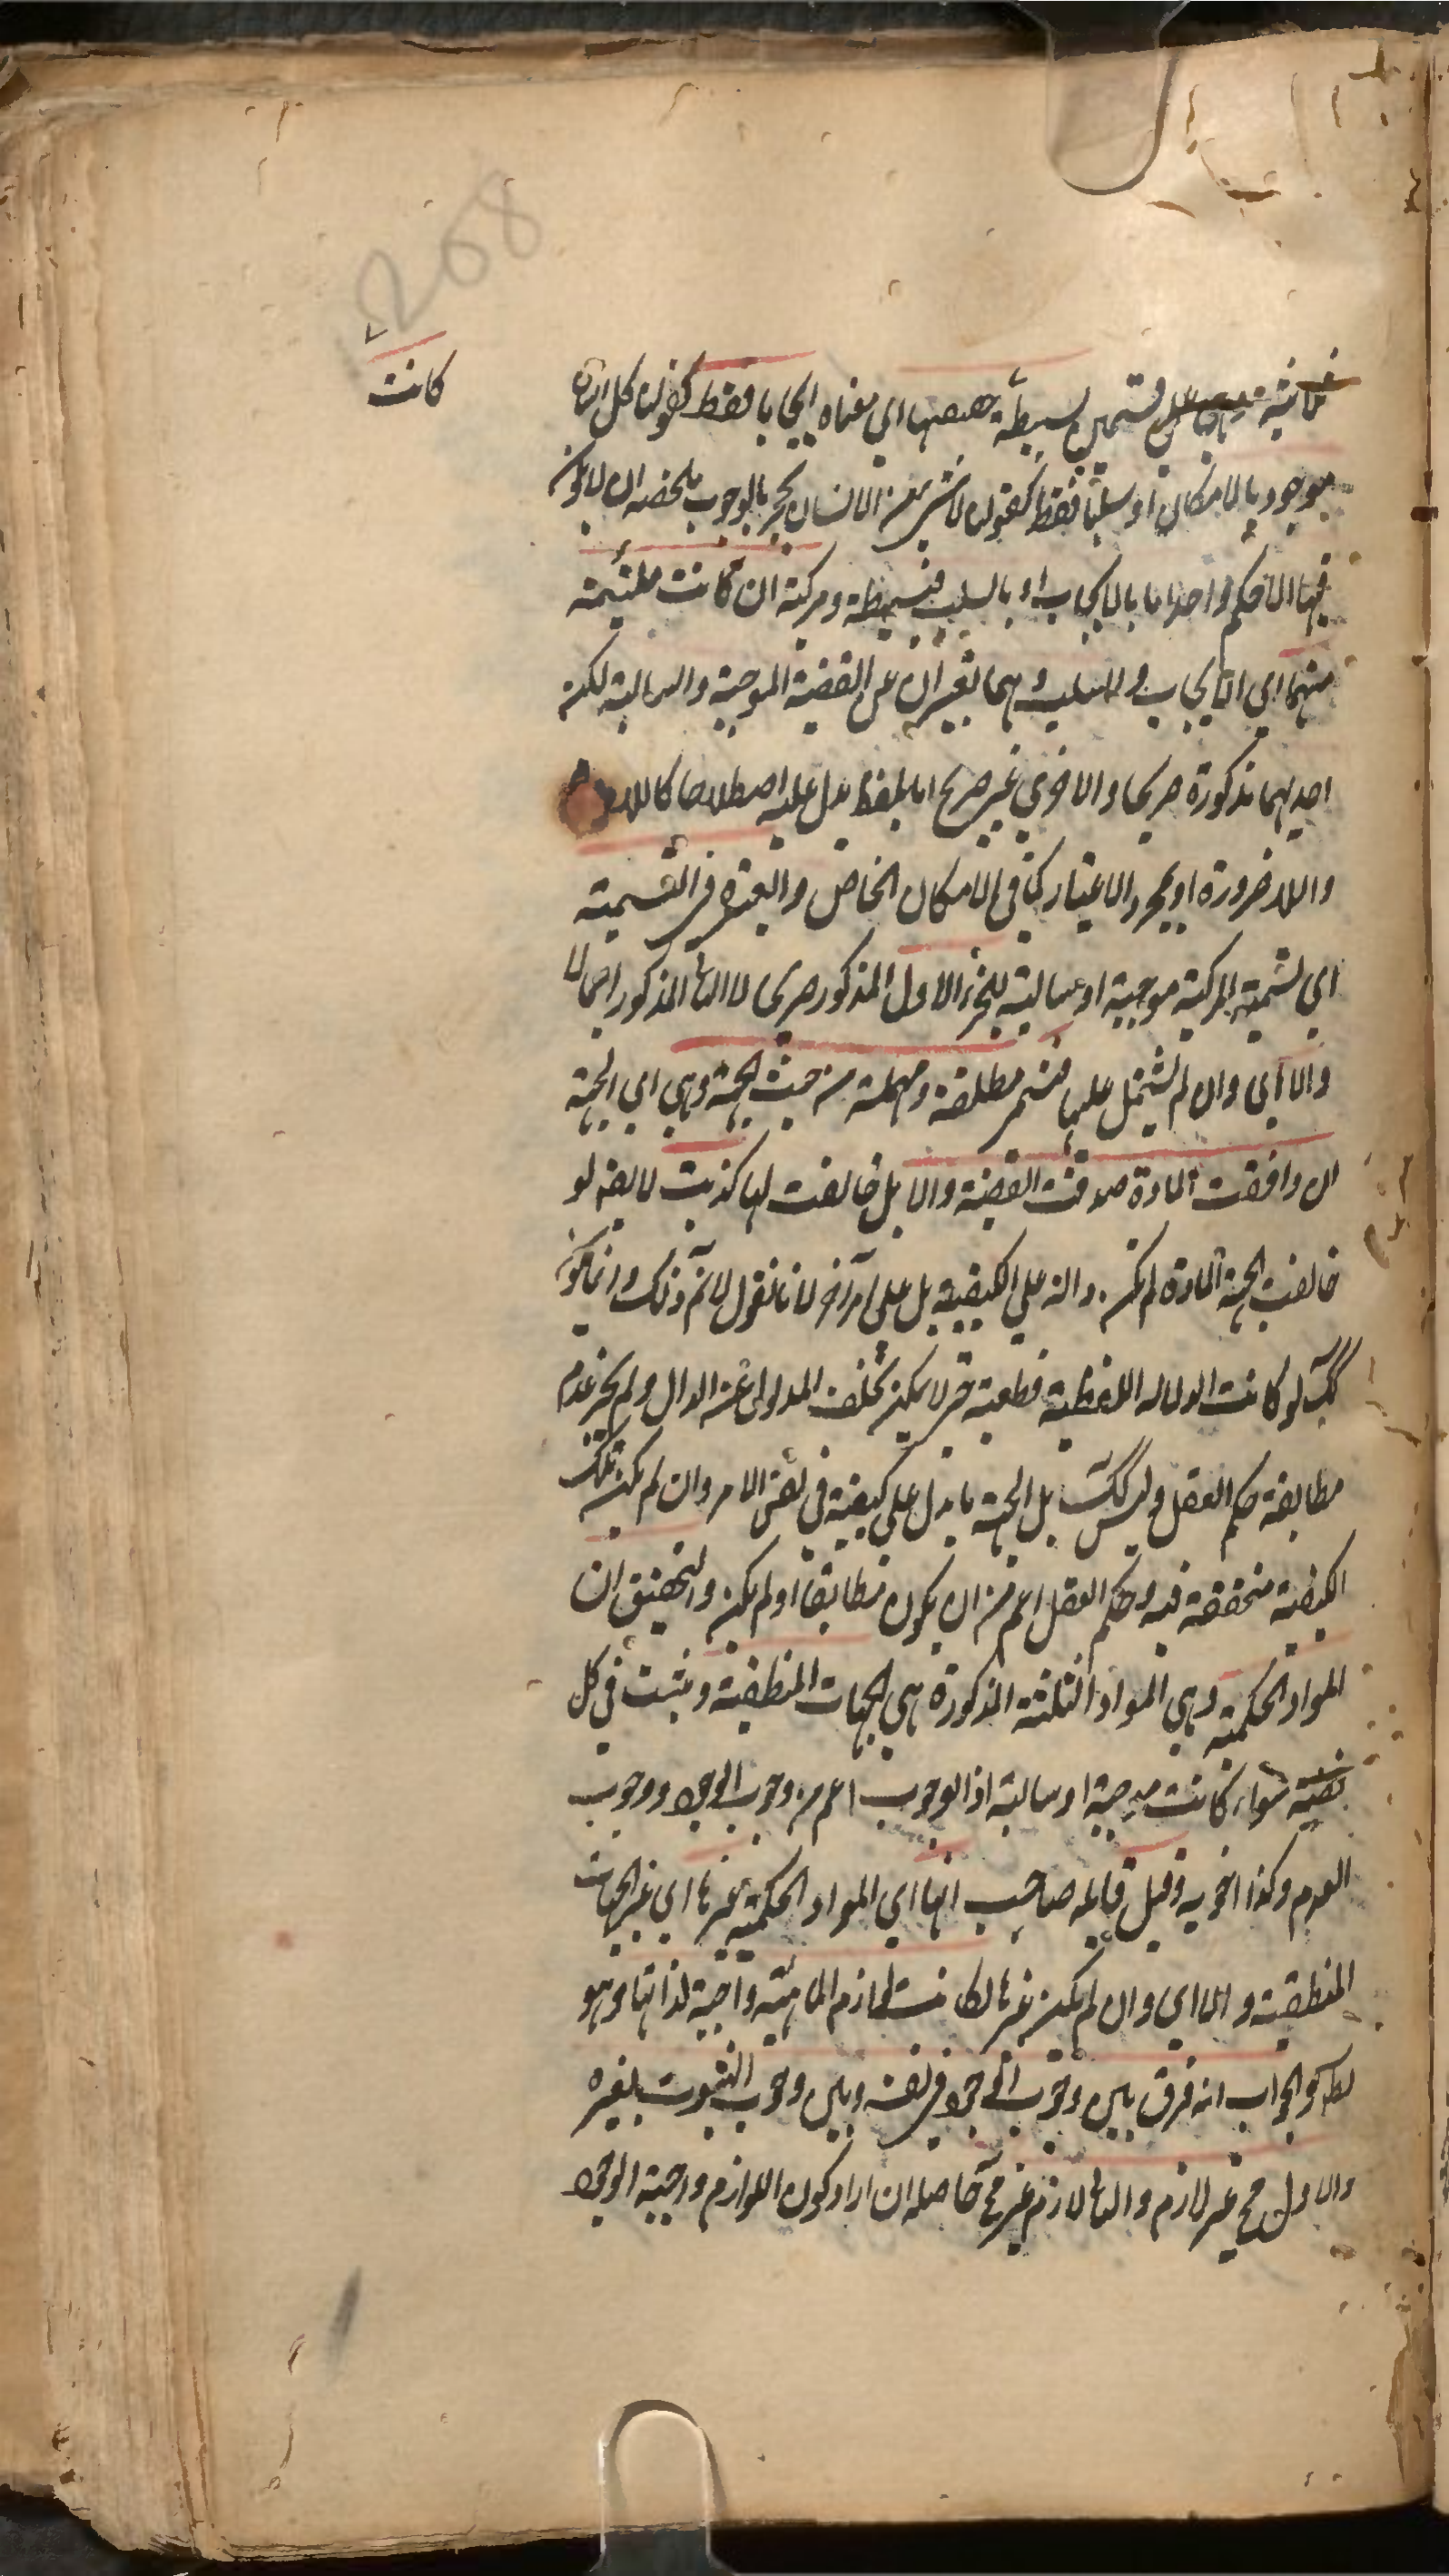 208
كانت
قسمين بسيطة حقيقتها اي معناه ايجابا فقط كقولنا كل انسان
موجود بالامكان او سلبا فقط كقولنا لا شئ من الانسان بحجر بالوجوب ملخصه ان لا يكون
فيها الا حكم واحد اما بالايجاب او بالسلب فبسيطة ومركبة ان كانت ملتئمة
منهما اي الايجاب والسلب وهما تعبيران عن القضية الموجبة والسالبة لكنه
احديهما مذكورة صريحا والاخرى غير صريح اما بلفظ يدل عليه اصطلاحا كاللادوام
واللاضرورة او بمجرد الاعتبار كما في الامكان الخاص والعبرة في التسمية
اي تسمية المركبة موجبة او سالبة للجزء الاول المذكور صريحا لا الثاني المذكور اجمالا
والا اي وان لم يشتمل عليها فتسمى مطلقة ومهملة من حيث الجهة وهي اي الجهة
ان وافقت المادة صدقت القضية والا بل خالفت لها كذبت لا يقال لو
خالفت الجهة المادة لم تكن دالة على الكيفية بل على امر آخر لانا نقول لا نم ذلك وانما يكون
كك لو كانت الدلالة اللفظية قطعية حتى لا يمكن تخلف المدلول عن الدال ولم يجز عدم
مطابقة حكم العقل وليس كك بل الجهة ما يدل على كيفية في نفس الامر وان لم يكن تلك
الكيفية متحققة فيه وحكم العقل اعم من ان يكون مطابقا او لم يكن والتحقيق ان
المواد الحكمية وهي المواد الثلثة المذكورة هي الجهات المنطقية ويثبت في كل
قضية سواء كانت موجبة او سالبة اذ الوجوب اعم من وجوب الوجود ووجوب
العدم وكذا اخويه وقيل قايله صاحب انها اي المواد الحكمية غيرها اي غير الجهات
المنطقية والا اي وان لم يكن غيرها لكانت لوازم الماهية واجبة لذاتها وهو
بط والجواب انه فرق بين وجوب الوجود في نفسه وبين وجوب الثبوت لغيره
والاول مح غير لازم والثاني لازم غير مح حاصله ان اراد كون اللوازم واجبة الوجود